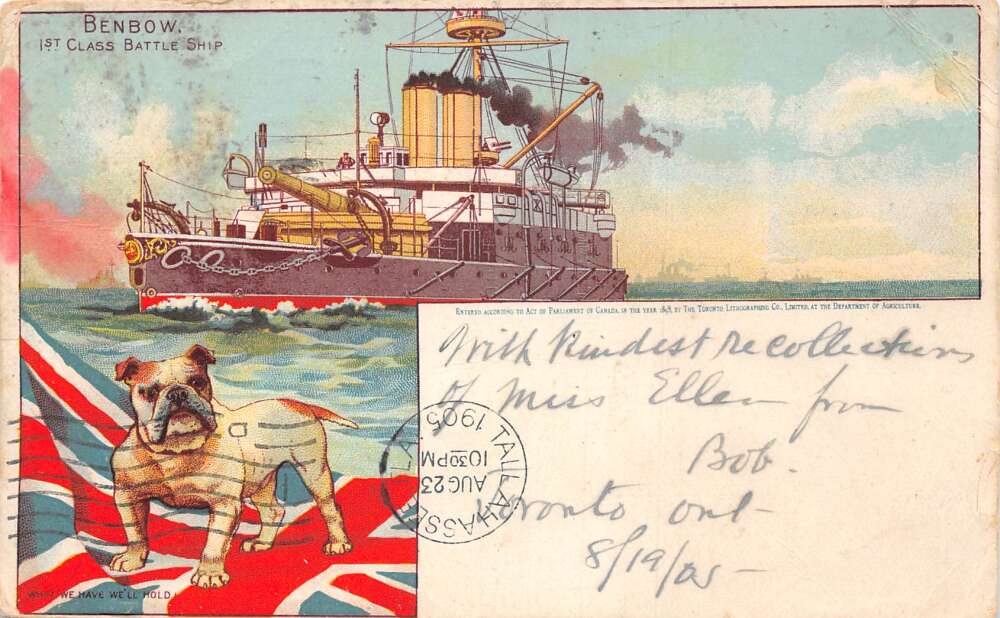 BENBOW.
1ST CLASS BATTLE SHIP.
ENTERED ACCORDING TO ACT OF PARLIAMENT OF CANADA, IN THE YEAR 1898, BY THE TORONTO LITHOGRAPHING CO., LIMITED, AT THE DEPARTMENT OF AGRICULTURE.
With kindest recollections
of Miss Ellen from
Bob.
Toronto Ont-
8/19/05-
TALLAHASSEE
AUG 23
10 30 PM
1905
WHAT WE HAVE WE'LL HOLD!